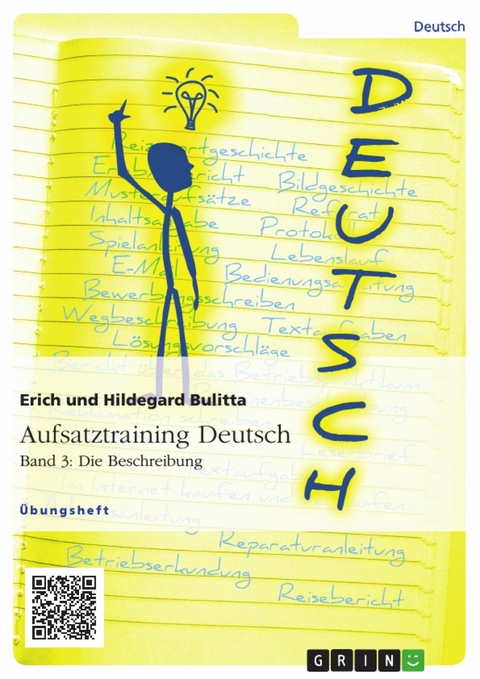 Deutsch
DEUTSCH
Reizwortgeschichte
Bildgeschichte
Musteraufsätze
Referat
Protokoll
Spielanleitung
Lebenslauf
E-Mail
Bedienungsanleitung
Bewerbungsschreiben
Wegbeschreibung
Textaufgaben
Lösungsvorschläge
Bericht über das Betriebspraktikum
Erich und Hildegard Bulitta
Aufsatztraining Deutsch
Leserbrief
Band 3: Die Beschreibung
Textaufgabe
Im Internet kaufen und
Übungsheft
Reparaturanleitung
Betriebserkundung
Reisebericht
GRIN